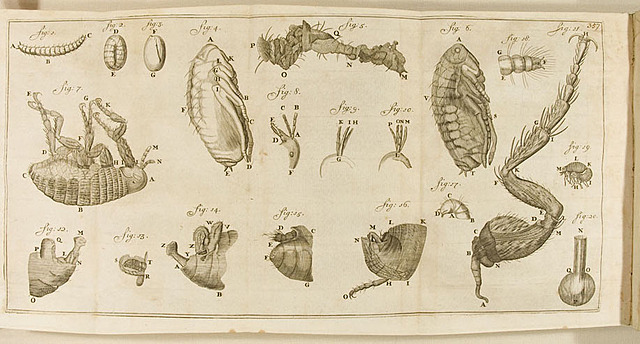 fig: 1. fig: 2. fig: 3. fig: 4. fig: 5. fig: 6. fig: 11. 357
A C B
D E
F G
A L K G H I F B C D E
P Q O N M
A V S
fig: 18.
G K
H
fig: 7. fig: 8. fig: 9. fig: 10.
E G K D F H M N A C B
C B E D A F
K I H G
P O N M
G I F K D E M C B N A
fig: 19.
L K I
fig: 17.
C D A B
fig: 12. fig: 13. fig: 14. fig: 15. fig: 16.
P Q M N L I O
S T R
Z Y A B W
D C E F G
M L K N O H I
N Q O